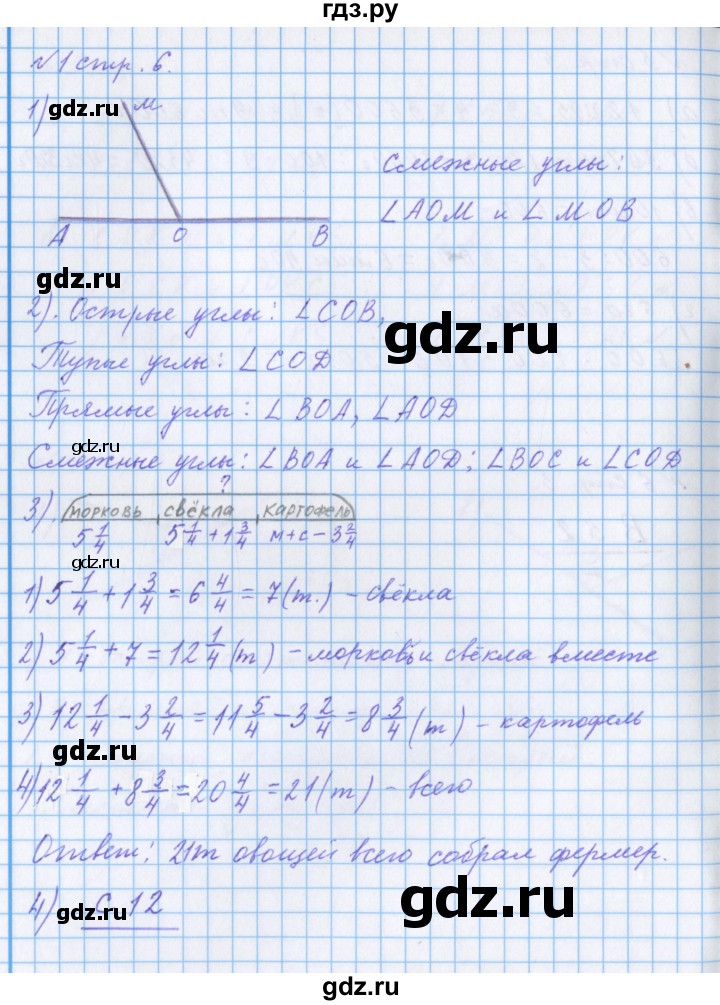 гдз.ру
№1 стр. 6.
1)
gdz.ru
М
А О В
Смежные углы:
∠АОМ и ∠МОВ
gdz.ru
2). Острые углы: ∠СОВ.
gdz.ru
Тупые углы: ∠СОD
Прямые углы: ∠ВОА, ∠АОD
gdz.ru
Смежные углы: ∠ВОА и ∠АОD; ∠ВОС и ∠СОD
?
3). морковь свёкла картофель
5 1/4 5 1/4 + 1 3/4 м+с – 3 2/4
gdz.ru
1) 5 1/4 + 1 3/4 = 6 4/4 = 7 (т.) – свёкла
2) 5 1/4 + 7 = 12 1/4 (т) – морковь и свёкла вместе
3) 12 1/4 – 3 2/4 = 11 5/4 – 3 2/4 = 8 3/4 (т) – картофель
gdz.ru
4) 12 1/4 + 8 3/4 = 20 4/4 = 21 (т) – всего
Ответ: 21т овощей всего собрал фермер.
4) с 12
gdz.ru
gdz.ru
gdz.ru